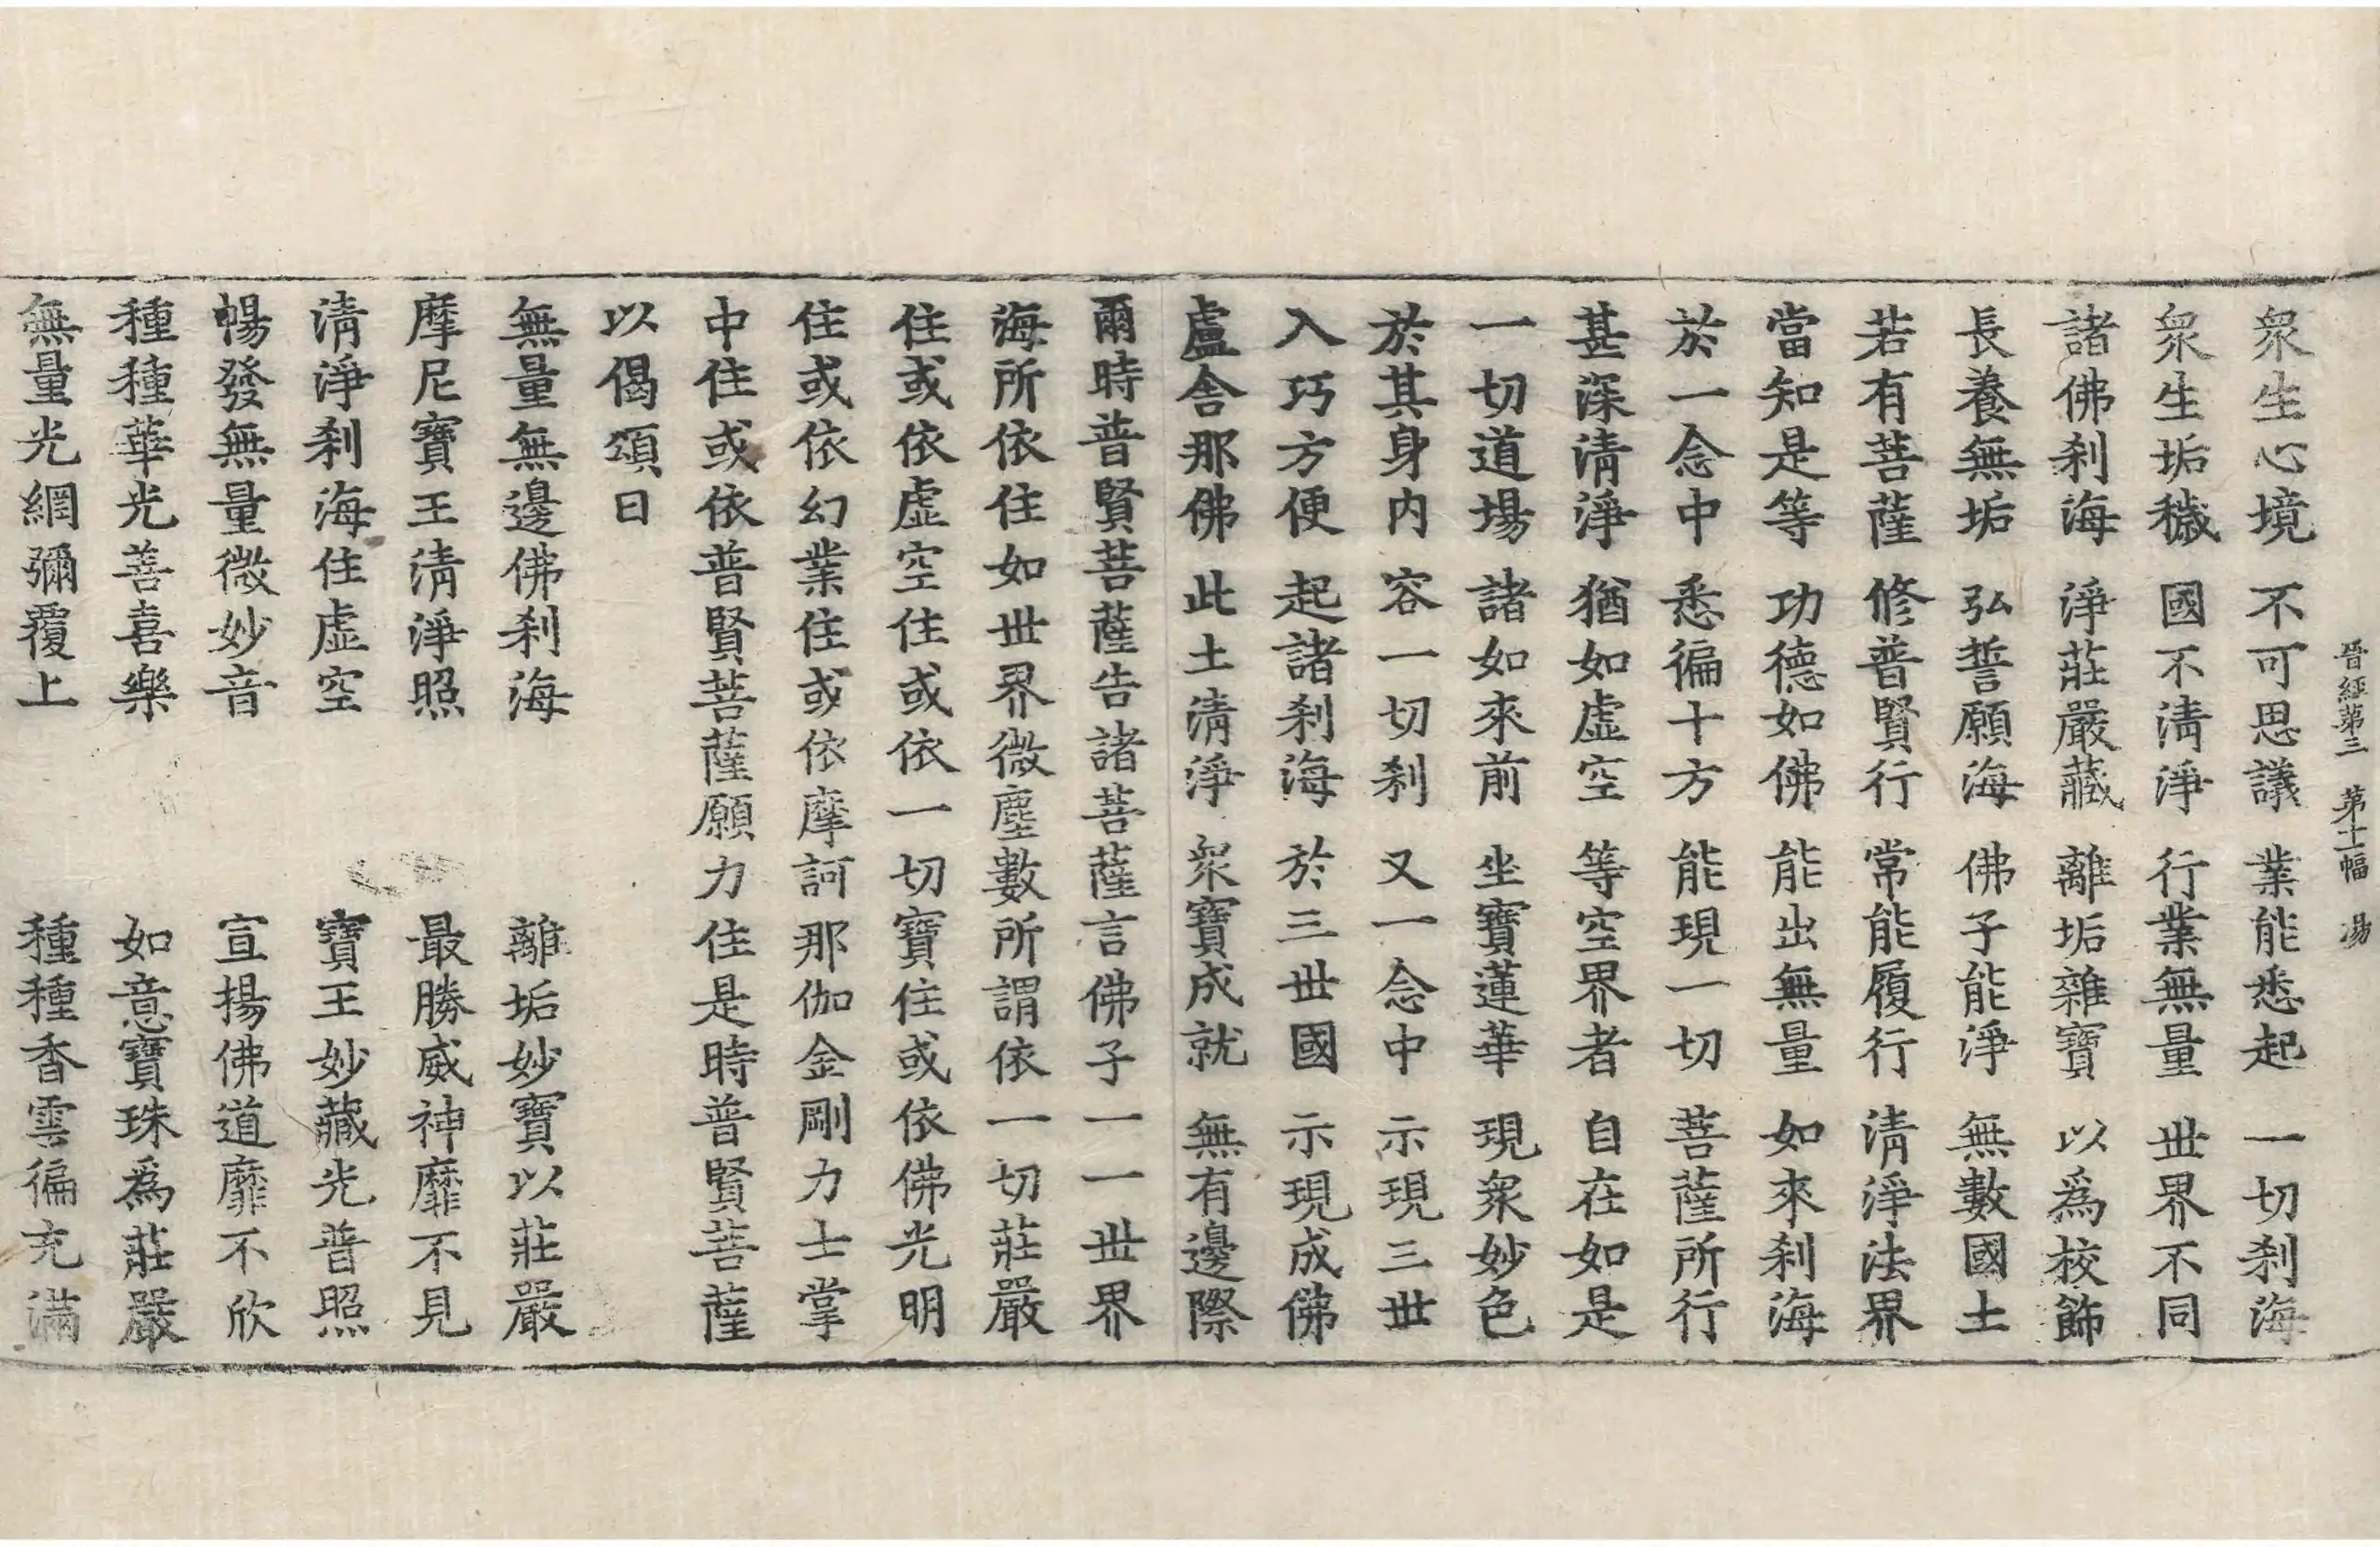 晉經第三　第十二幅　湯
衆生心境　不可思議　業能悉起　一切刹海
衆生垢穢　國不淸淨　行業無量　世界不同
諸佛刹海　淨莊嚴藏　離垢雜寶　以爲校飾
長養無垢　弘誓願海　佛子能淨　無數國土
若有菩薩　修普賢行　常能履行　淸淨法界
當知是等　功德如佛　能出無量　如來刹海
於一念中　悉徧十方　能現一切　菩薩所行
甚深淸淨　猶如虛空　等空界者　自在如是
一切道場　諸如來前　坐寶蓮華　現衆妙色
於其身內　容一切刹　又一念中　示現三世
入巧方便　起諸刹海　於三世國　示現成佛
盧舍那佛　此土淸淨　衆寶成就　無有邊際
爾時普賢菩薩告諸菩薩言佛子一一世界
海所依住如世界微塵數所謂依一切莊嚴
住或依虛空住或依一切寶住或依佛光明
住或依幻業住或依摩訶那伽金剛力士掌
中住或依普賢菩薩願力住是時普賢菩薩
以偈頌曰
無量無邊佛刹海　離垢妙寶以莊嚴
摩尼寶王淸淨照　最勝威神靡不見
淸淨刹海住虛空　寶王妙藏光普照
暢發無量微妙音　宣揚佛道靡不欣
種種華光善喜樂　如意寶珠爲莊嚴
無量光網彌覆上　種種香雲徧充滿